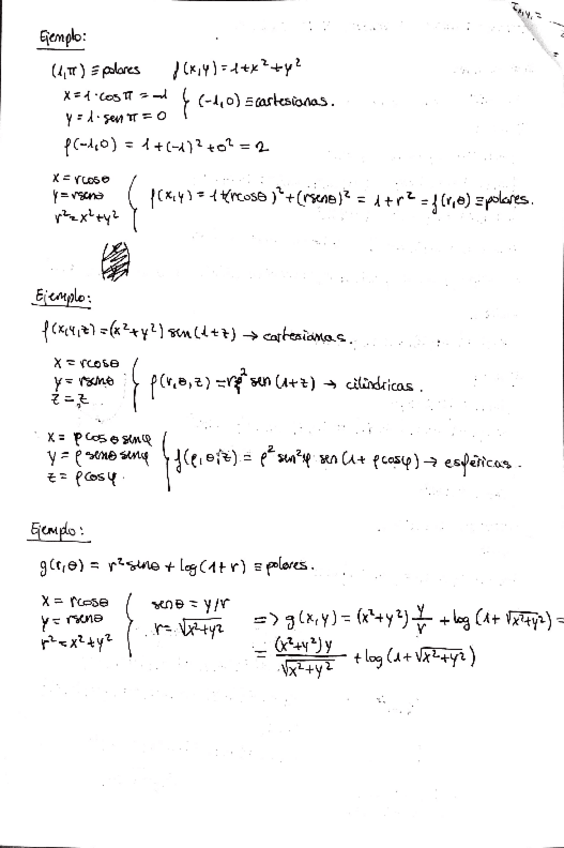 Ejemplo:
(1,π) ≡ polares f(x,y) = 1+x²+y²
x = 1·cos π = -1
y = 1·sen π = 0 } (-1,0) ≡ cartesianas.
f(-1,0) = 1+(-1)²+0² = 2
x = rcosθ
y = rsenθ } f(x,y) = 1+(rcosθ)²+(rsenθ)² = 1+r² = f(r,θ) ≡ polares.
r² = x²+y²
Ejemplo:
f(x,y,z) = (x²+y²) sen(1+z) → cartesianas.
x = rcosθ
y = rsenθ } f(r,θ,z) = r² sen(1+z) → cilíndricas.
z = z
x = ρcosθ senφ
y = ρsenθ senφ } f(ρ,θ,z) = ρ² sen²φ sen(1+ρcosφ) → esféricas.
z = ρcosφ.
Ejemplo:
g(r,θ) = r² senθ + log(1+r) ≡ polares.
x = rcosθ } senθ = y/r
y = rsenθ } r = √x²+y² => g(x,y) = (x²+y²) y/r + log(1+√x²+y²) =
r² = x²+y²
= (x²+y²)y/√x²+y² + log(1+√x²+y²)